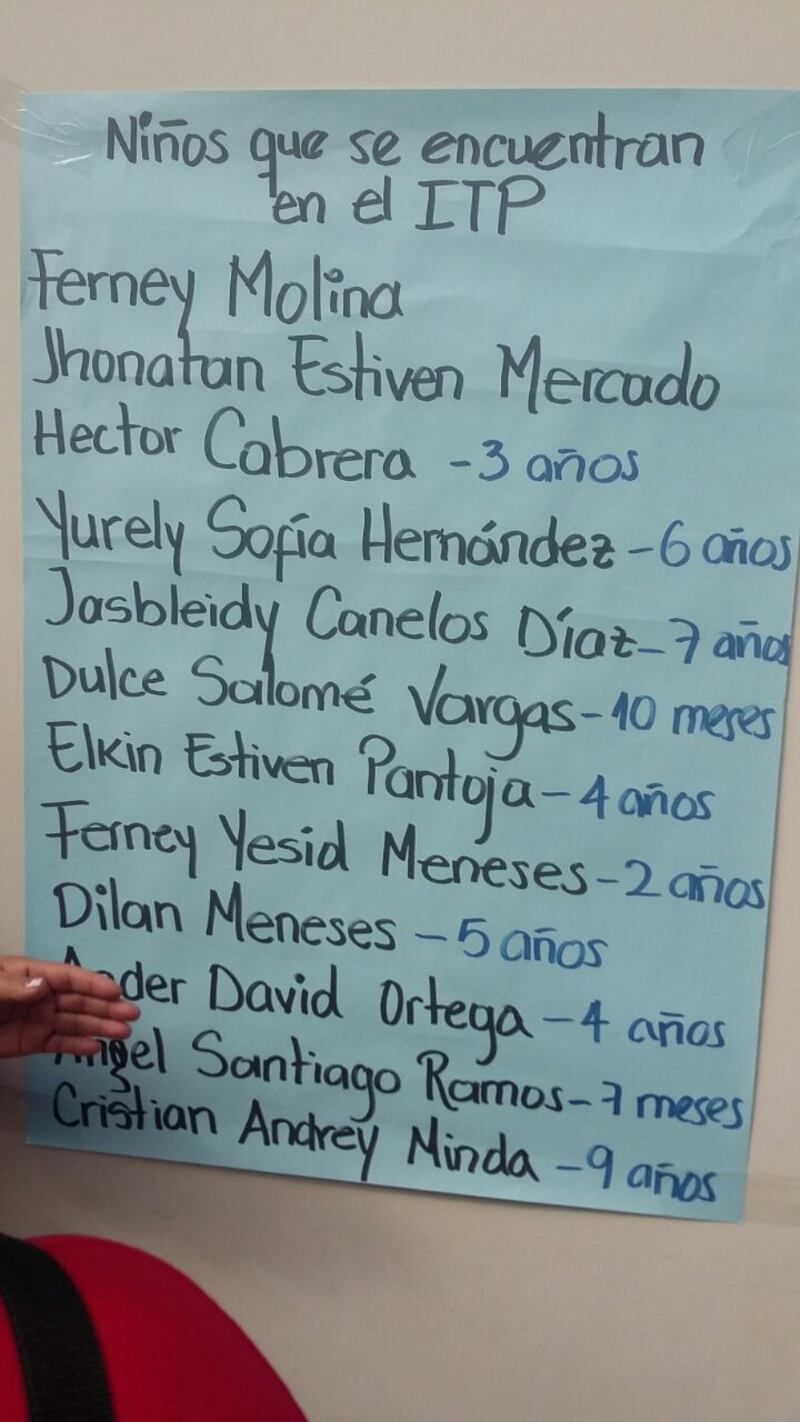 Niños que se encuentran
en el ITP
Ferney Molina
Jhonatan Estiven Mercado
Hector Cabrera - 3 años
Yurely Sofía Hernández - 6 años
Jasbleidy Canelos Díaz - 7 años
Dulce Salomé Vargas - 10 meses
Elkin Estiven Pantoja - 4 años
Ferney Yesid Meneses - 2 años
Dilan Meneses - 5 años
David Ortega - 4 años
Angel Santiago Ramos - 7 meses
Cristian Andrey Minda - 9 años